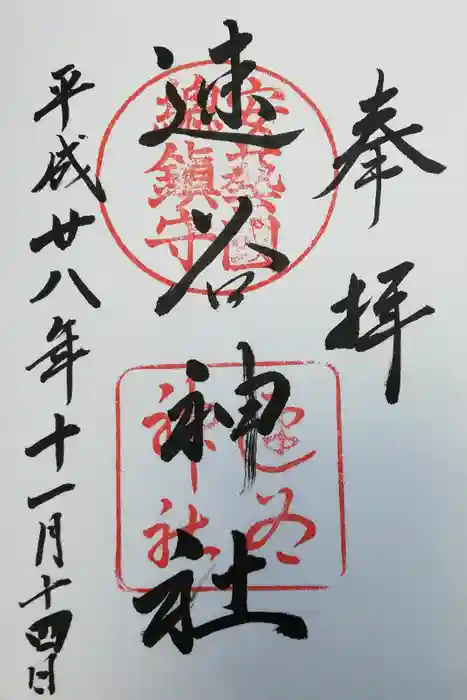 奉拝
速谷神社
平成廿八年十一月十四日
安藝国
総鎮守
速谷
神社